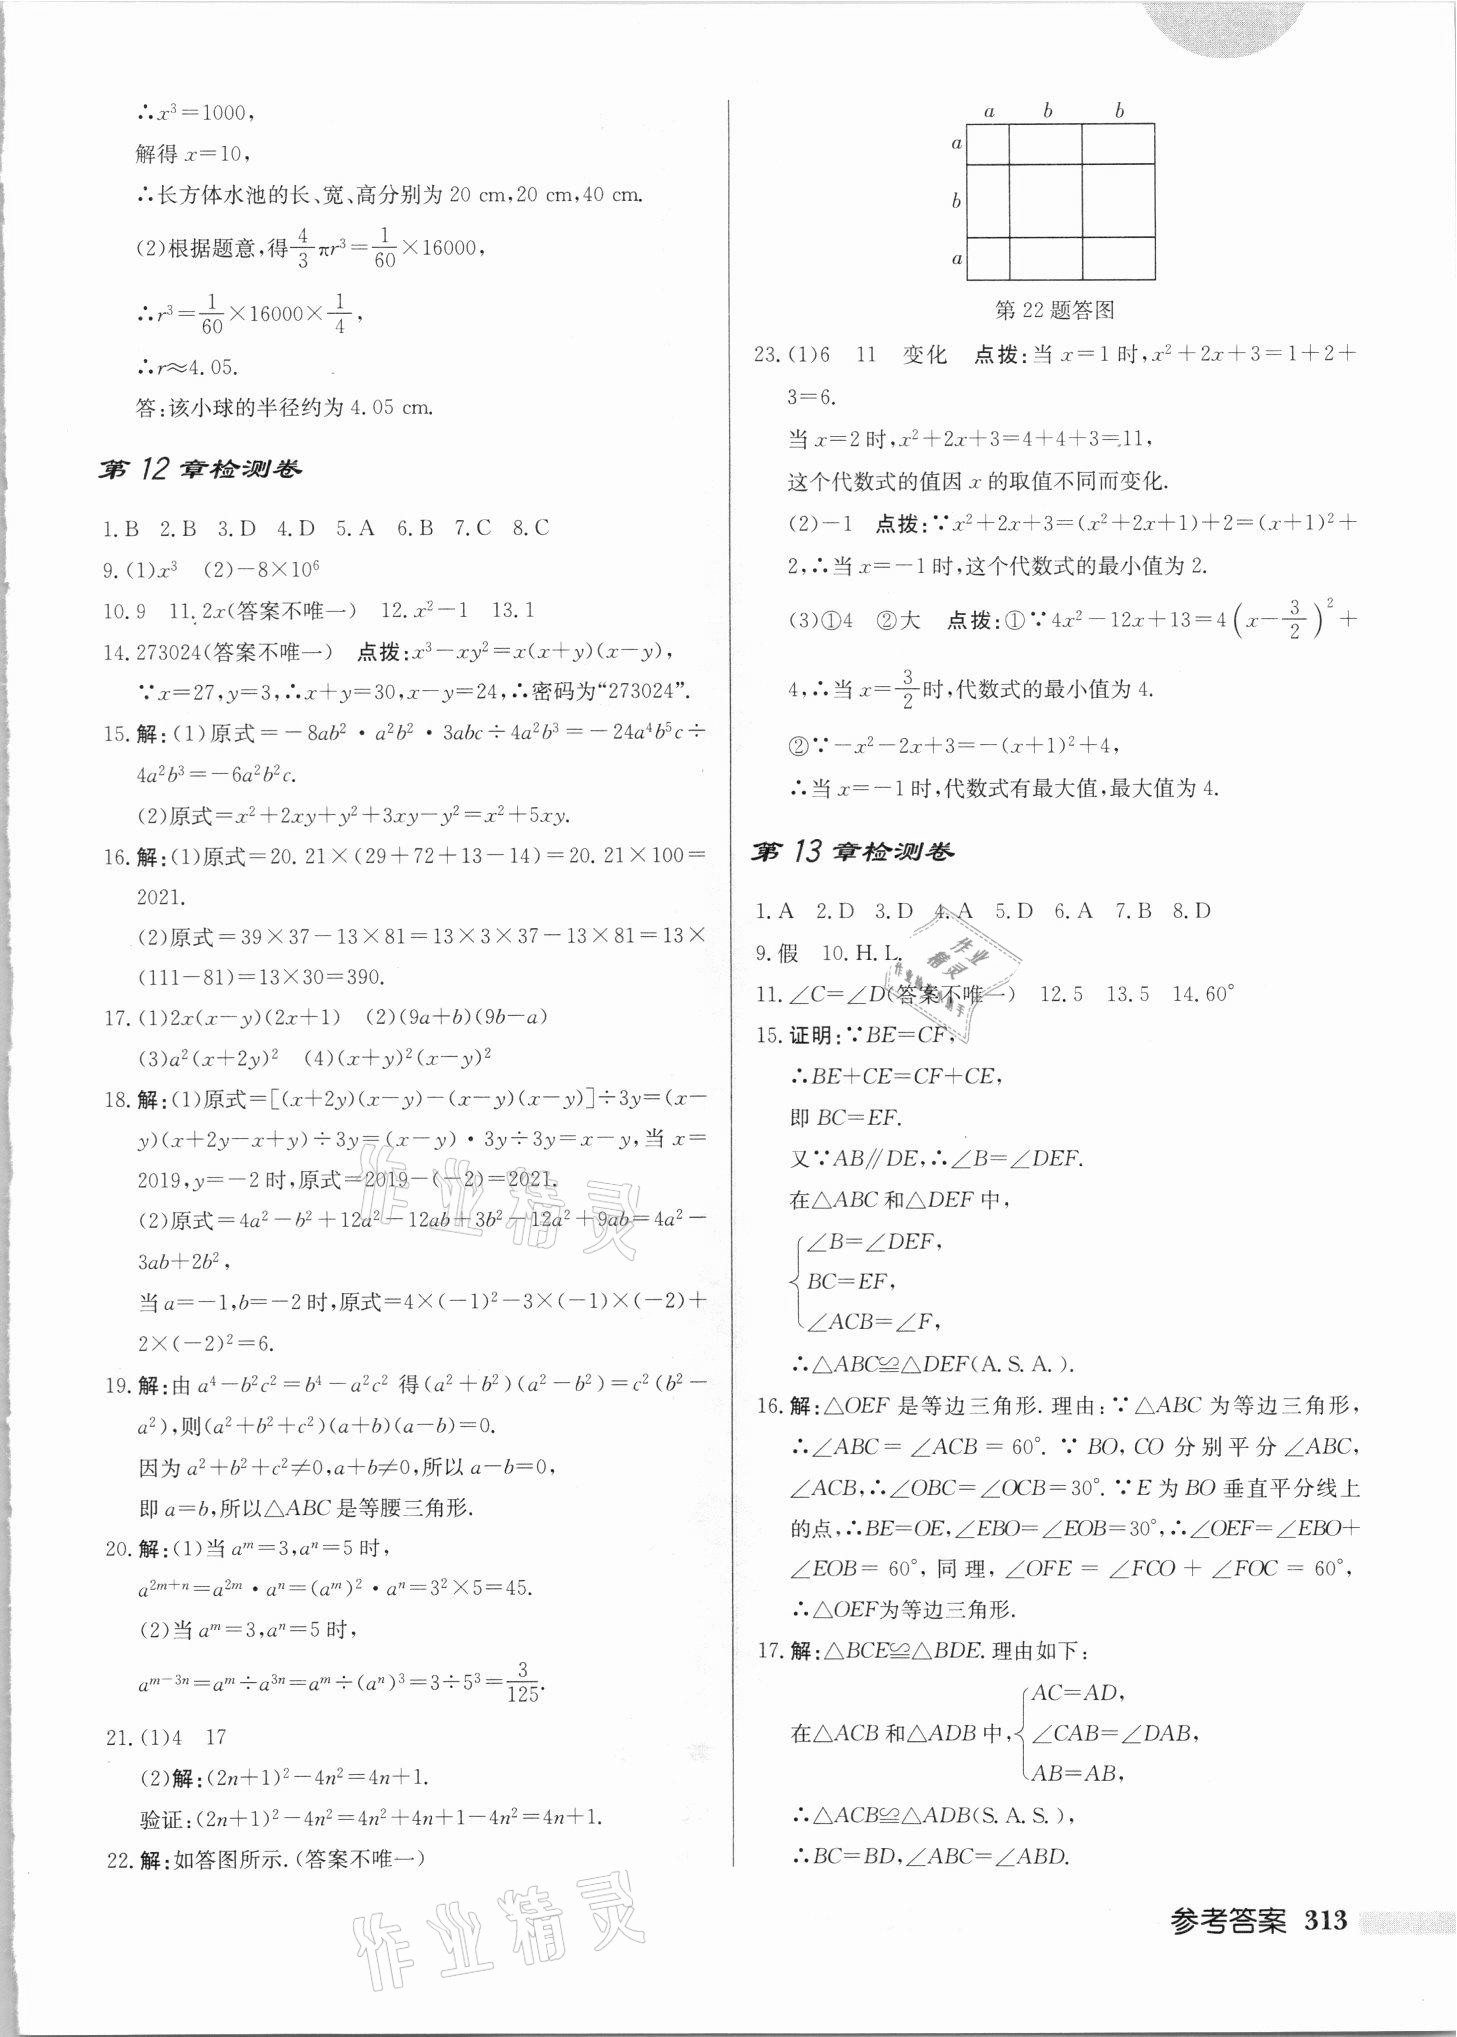 ∴x³=1000,
解得 x=10,
∴长方体水池的长、宽、高分别为 20 cm,20 cm,40 cm.
(2)根据题意,得4/3πr³=1/60×16000,
∴r³=1/60×16000×1/4,
∴r≈4.05.
答:该小球的半径约为 4.05 cm.
第 12 章检测卷
1.B 2.B 3.D 4.D 5.A 6.B 7.C 8.C
9.(1)x³ (2)−8×10⁶
10.9 11.2x(答案不唯一) 12.x²−1 13.1
14.273024(答案不唯一) 点拨:x³−xy²=x(x+y)(x−y),
∵x=27,y=3,∴x+y=30,x−y=24,∴密码为“273024”.
15.解:(1)原式=−8ab²·a²b²·3abc÷4a²b³=−24a⁴b⁵c÷
4a²b³=−6a²b²c.
(2)原式=x²+2xy+y²+3xy−y²=x²+5xy.
16.解:(1)原式=20.21×(29+72+13−14)=20.21×100=
2021.
(2)原式=39×37−13×81=13×3×37−13×81=13×
(111−81)=13×30=390.
17.(1)2x(x−y)(2x+1) (2)(9a+b)(9b−a)
(3)a²(x+2y)² (4)(x+y)²(x−y)²
18.解:(1)原式=[(x+2y)(x−y)−(x−y)(x−y)]÷3y=(x−
y)(x+2y−x+y)÷3y=(x−y)·3y÷3y=x−y,当 x=
2019,y=−2 时,原式=2019−(−2)=2021.
(2)原式=4a²−b²+12a²−12ab+3b²−12a²+9ab=4a²−
3ab+2b²,
当 a=−1,b=−2 时,原式=4×(−1)²−3×(−1)×(−2)+
2×(−2)²=6.
19.解:由 a⁴−b²c²=b⁴−a²c² 得(a²+b²)(a²−b²)=c²(b²−
a²),则(a²+b²+c²)(a+b)(a−b)=0.
因为 a²+b²+c²≠0,a+b≠0,所以 a−b=0,
即 a=b,所以△ABC 是等腰三角形.
20.解:(1)当 aᵐ=3,aⁿ=5 时,
a²ᵐ⁺ⁿ=a²ᵐ·aⁿ=(aᵐ)²·aⁿ=3²×5=45.
(2)当 aᵐ=3,aⁿ=5 时,
aᵐ⁻³ⁿ=aᵐ÷a³ⁿ=aᵐ÷(aⁿ)³=3÷5³=3/125.
21.(1)4 17
(2)解:(2n+1)²−4n²=4n+1.
验证:(2n+1)²−4n²=4n²+4n+1−4n²=4n+1.
22.解:如答图所示.(答案不唯一)
a b b
a
b
a
第 22 题答图
23.(1)6 11 变化 点拨:当 x=1 时,x²+2x+3=1+2+
3=6.
当 x=2 时,x²+2x+3=4+4+3=11,
这个代数式的值因 x 的取值不同而变化.
(2)−1 点拨:∵x²+2x+3=(x²+2x+1)+2=(x+1)²+
2,∴当 x=−1 时,这个代数式的最小值为 2.
(3)①4 ②大 点拨:①∵4x²−12x+13=4(x−3/2)²+
4,∴当 x=3/2时,代数式的最小值为 4.
②∵−x²−2x+3=−(x+1)²+4,
∴当 x=−1 时,代数式有最大值,最大值为 4.
第 13 章检测卷
1.A 2.D 3.D 4.A 5.D 6.A 7.B 8.D
9.假 10.H.L.
11.∠C=∠D(答案不唯一) 12.5 13.5 14.60°
15.证明:∵BE=CF,
∴BE+CE=CF+CE,
即 BC=EF.
又∵AB∥DE,∴∠B=∠DEF.
在△ABC 和△DEF 中,
∠B=∠DEF,
BC=EF,
∠ACB=∠F,
∴△ABC≌△DEF(A.S.A.).
16.解:△OEF 是等边三角形.理由:∵△ABC 为等边三角形,
∴∠ABC=∠ACB=60°.∵BO,CO 分别平分∠ABC,
∠ACB,∴∠OBC=∠OCB=30°.∵E 为 BO 垂直平分线上
的点,∴BE=OE,∠EBO=∠EOB=30°,∴∠OEF=∠EBO+
∠EOB=60°,同理,∠OFE=∠FCO+∠FOC=60°,
∴△OEF为等边三角形.
17.解:△BCE≌△BDE.理由如下:
AC=AD,
在△ACB 和△ADB 中,∠CAB=∠DAB,
AB=AB,
∴△ACB≌△ADB(S.A.S.),
∴BC=BD,∠ABC=∠ABD.
参考答案 313
作业精灵
作业精灵
作业精灵